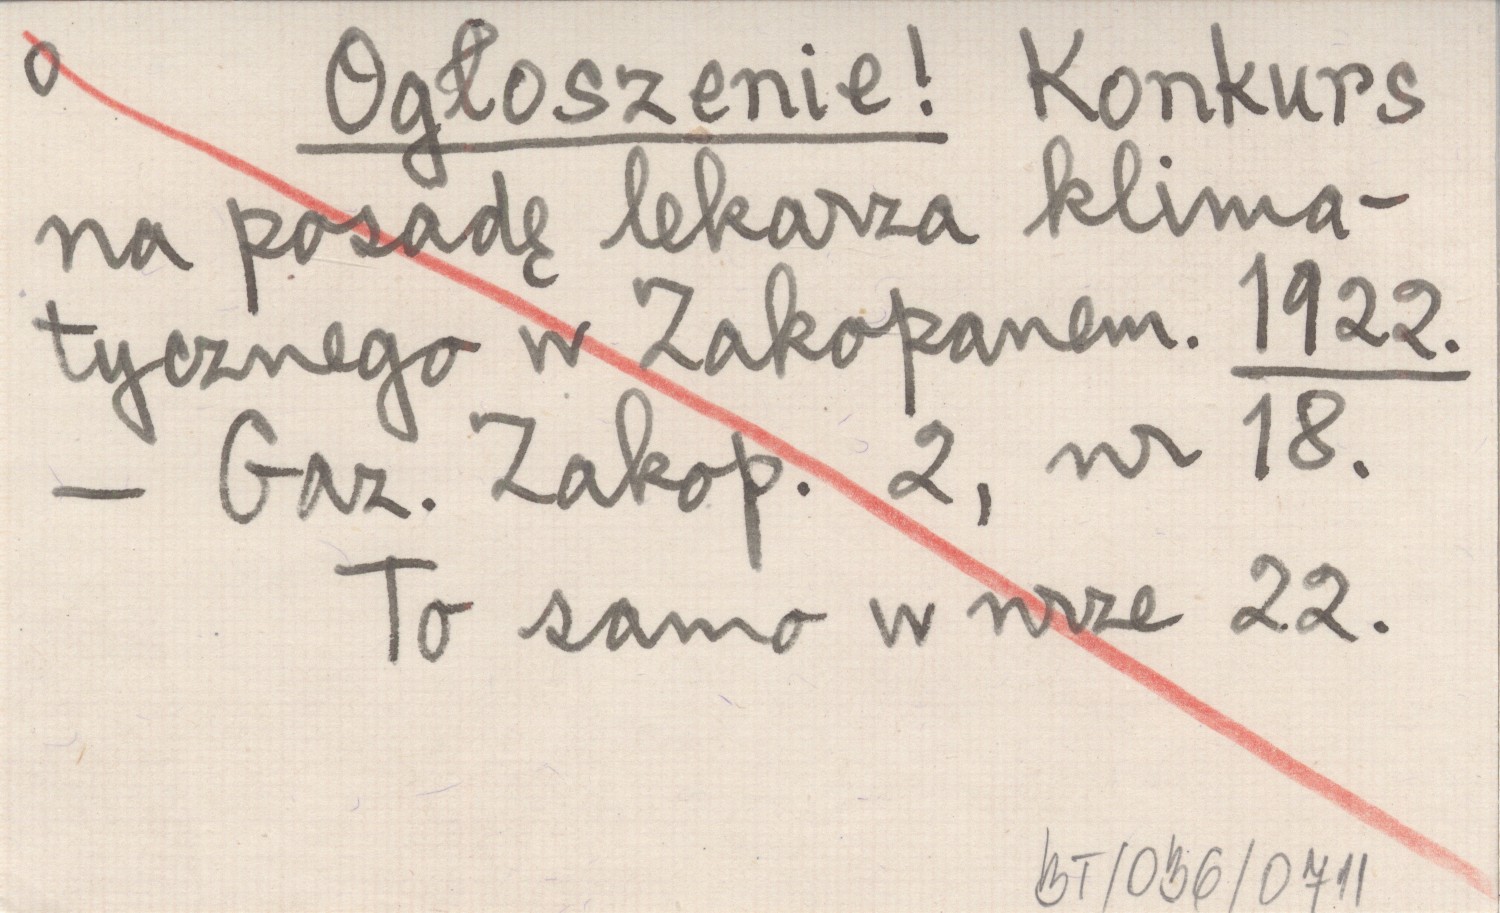 o Ogłoszenie! Konkurs
na posadę lekarza klima-
tycznego w Zakopanem. 1922.
— Gaz. Zakop. 2, nr 18.
To samo w nrze 22.
BT/056/0711